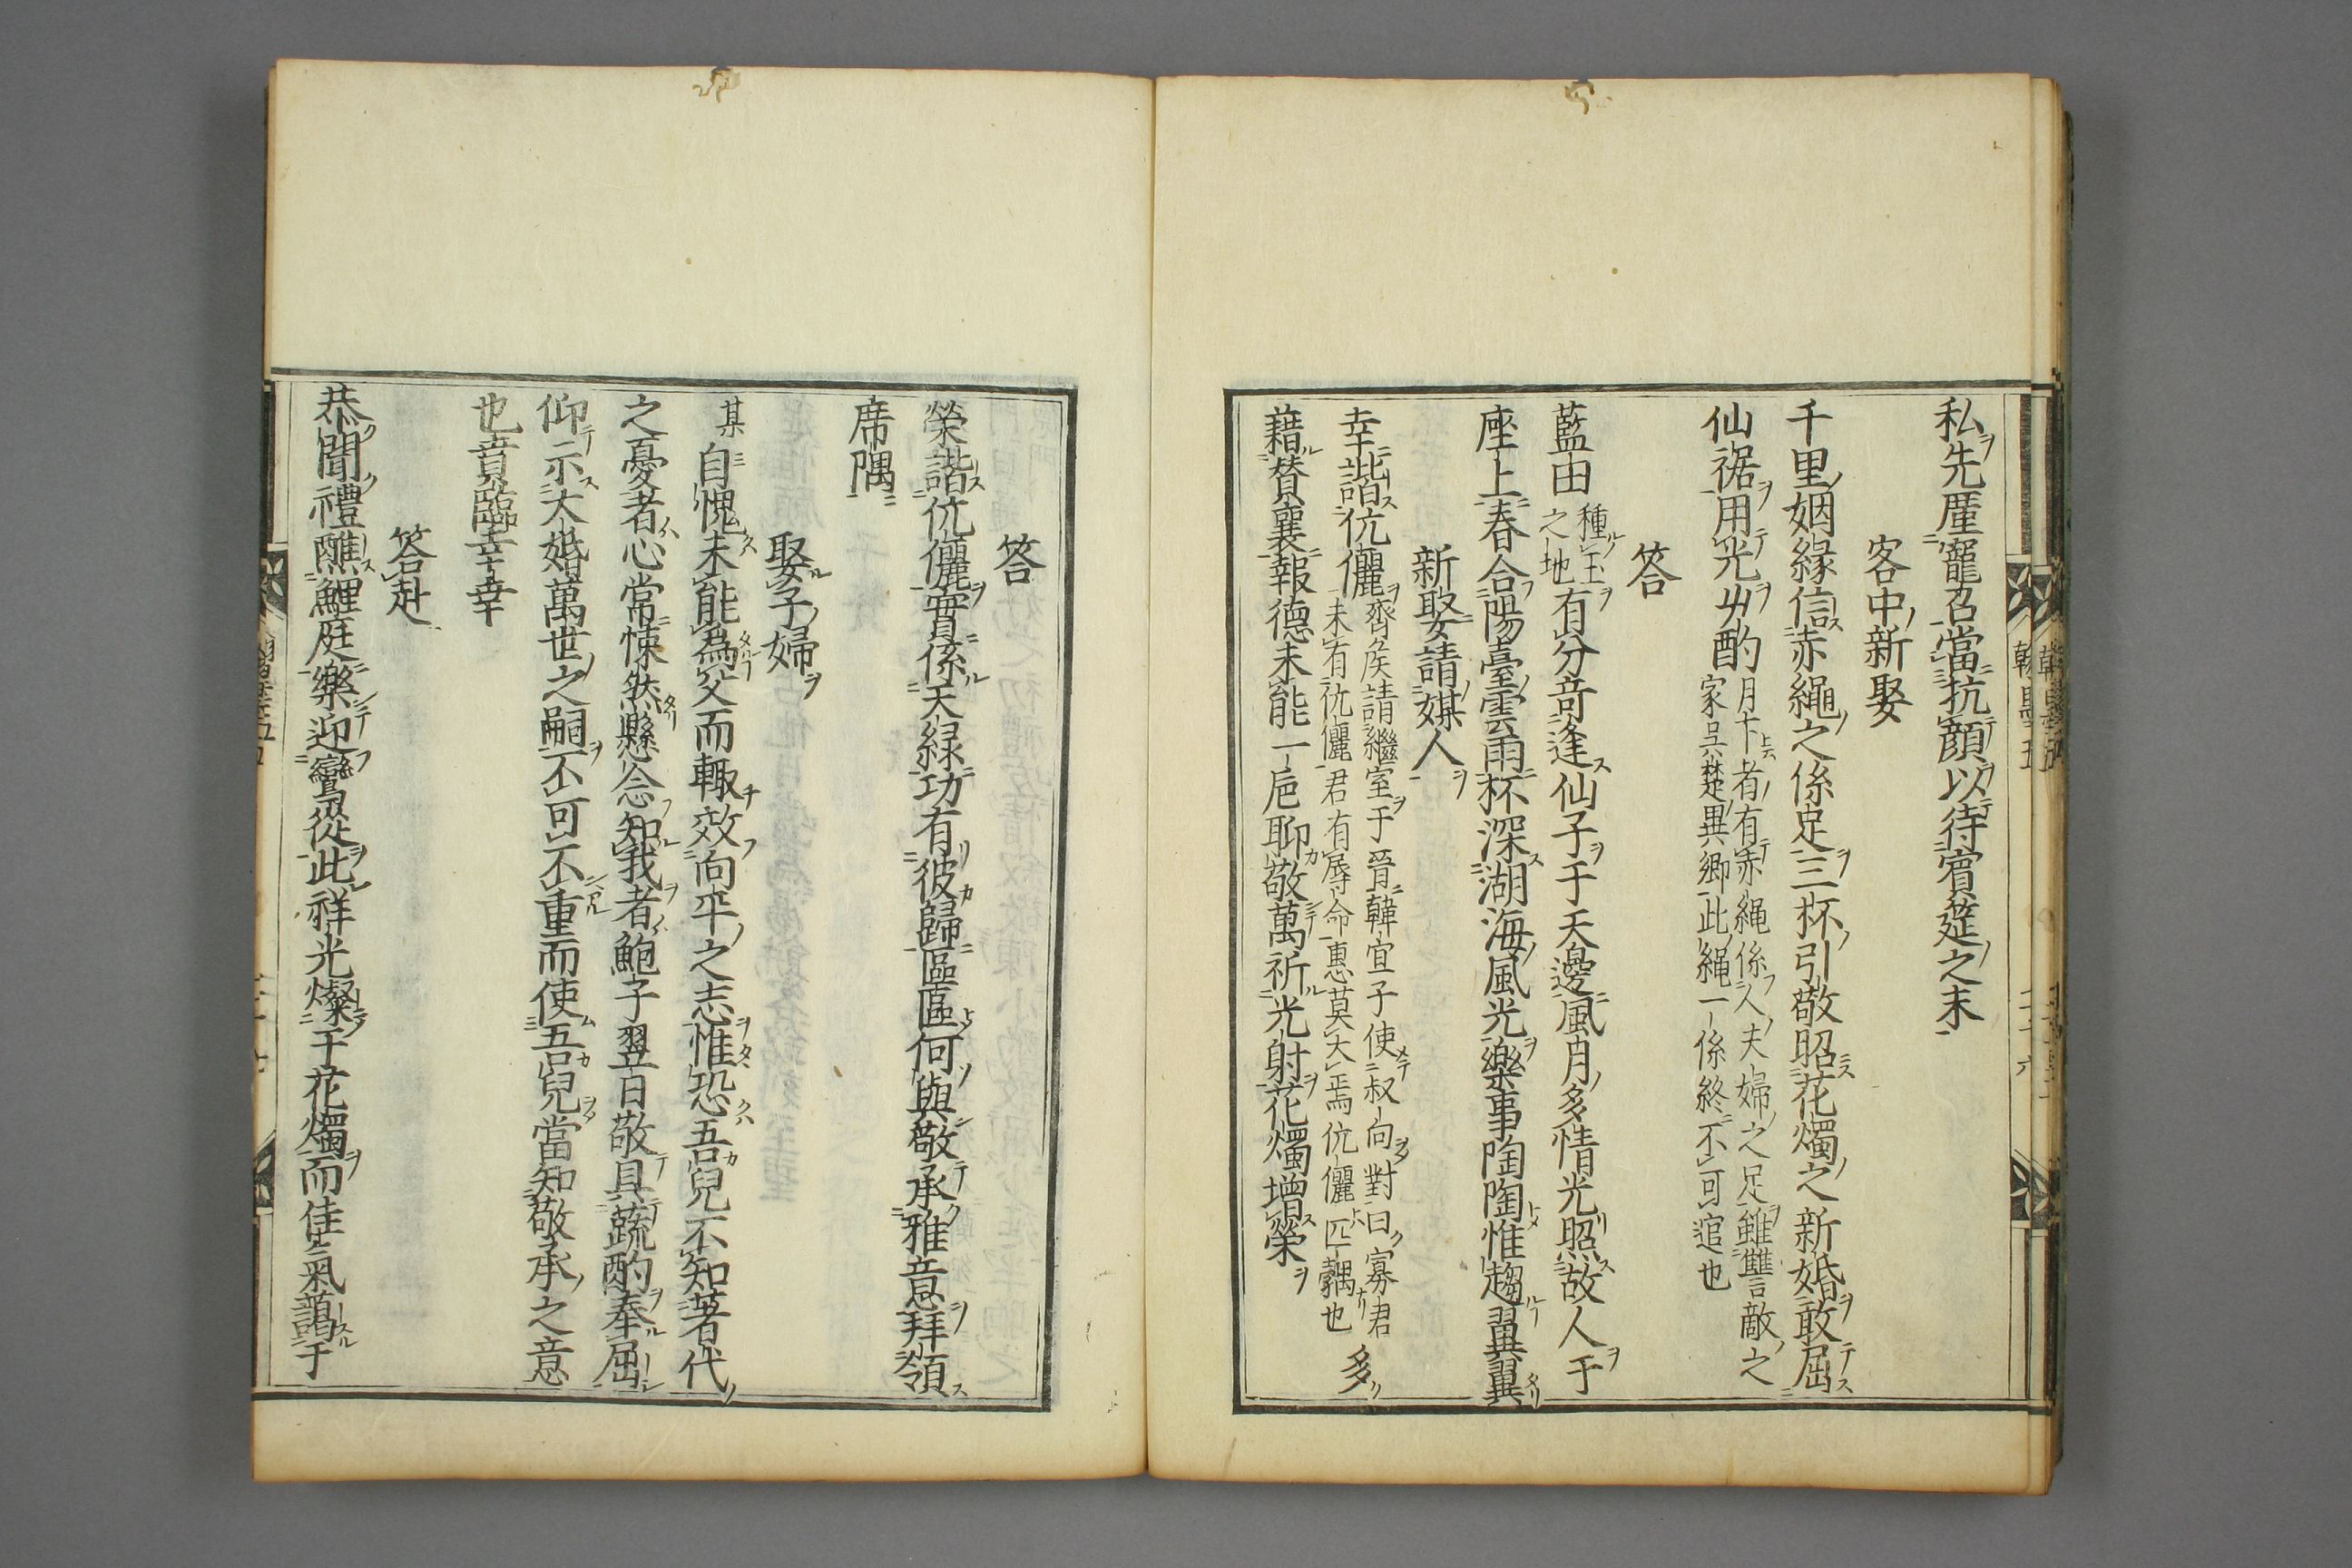 私先厪寵召當抗顔以待賓筵之末
客中新娶
千里姻縁信赤繩之係足三杯引敬昭花燭之新婚敢屈
仙裾用光艸酌
月下者有赤繩係人夫婦之足雖讐言敵之
家呉楚異郷此繩一係終不可逭也
答
藍田
種玉
之地
有分竒逢仙子于天邊風月多情光照故人于
座上春合陽臺雲雨杯深湖海風光樂事陶陶惟趨翼翼
新娶請媒人
幸諧伉儷
齊矦請繼室于晉韓宣子使叔向對曰寡君
未有伉儷君有辱命惠莫大焉伉儷匹耦也
多
藉賛襄報德未能一巵聊敬萬祈光射花燭增榮
答
榮諧伉儷實係天緑功有彼歸區區何與敬承雅意拜領
席隅
娶子婦
某自愧未能為父而輙效向平之志惟恐吾兒不知著代
之憂者心常悚然懸念知我者鮑子翌日敬具蔬酌奉屈
仰示大婚萬世之嗣不可不重而使吾兒當知敬承之意
也賁臨幸幸
答赴
恭聞禮醮鯉庭樂迎鸞從此祥光燦于花燭而佳氣藹于